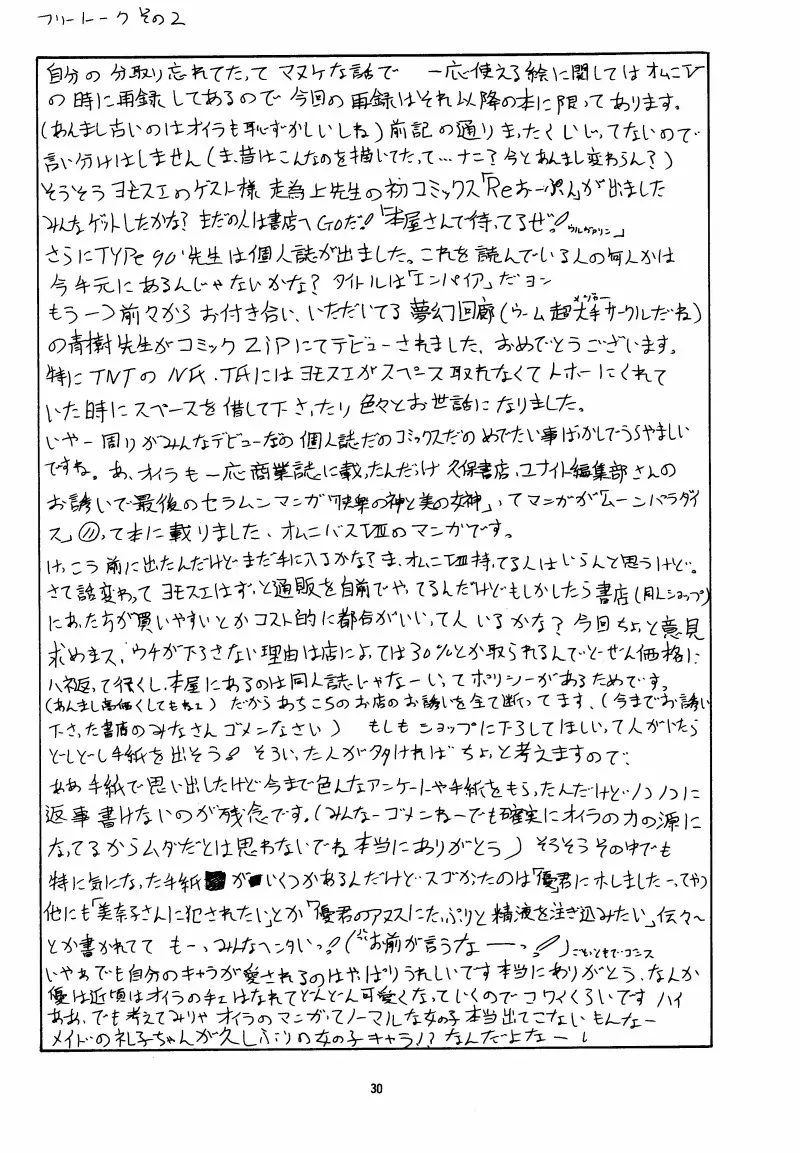 フリートーク その2
自分の分取り忘れてた,て マヌケな話で 一応使える絵に関してはオムニⅣ
の時に再録してあるので今回の再録はそれ以降の本に限ってあります。
(あんまし古いのはオイラも恥ずかしいしね)前記の通りまったくいじってないので
言い分けはしません(ま、昔はこんなのを描いてたって…ナニ?今とあんまし変わらん?)
そうそうヨモスエのゲスト様 走為上先生の初コミックス「Reおーぷん」が出ました
みんなゲットしたかな?まだの人は書店へGoだ!「本屋さんで待ってるぜ!ウルヴァリン」
さらにTYPe90'先生は個人誌が出ました。これを読んでいる人の何人かは
今手元にあるんじゃないかな?タイトルは「エンパイア」だヨン
もう一つ前々からお付き合い、いただいてる夢幻回廊(ウーム超大手サークルだね)
の青樹先生がコミックZiPにてデビューされました、おめでとうございます。
特にTNTのNF.TFにはヨモスエがスペース取れなくてトホーにくれて
いた時にスペースを借して下さったり色々とお世話になりました。
いやー周りがみんなデビューなの個人誌だのコミックスだのめでたい事ばかしでうらやましい
ですね。あ、オイラも一応商業誌に載ったんだっけ 久保書店、ユナイト編集部さんの
お誘いで最後のセラムンマンガ「快楽の神と美の女神」ってマンガが「ムーンパラダイ
ス」⑪って本に載りました、オムニバスⅧのマンガです。
けっこう前に出たんだけどまだ手に入るかな?ま、オムニⅧ持ってる人はいらんと思うけど。
さて話変わってヨモスエはずっと通販を自前でやってるんだけどもしかしたら書店(同人ショップ)
にあった方が買いやすいとかコスト的に都合がいいって人いるかな?今回ちょっと意見
求めまス、ウチが下ろさない理由は店によっては30%とか取られるんでどーせん価格に
ハネ返って行くし、本屋にあるのは同人誌じゃなーいってポリシーがあるためです。
(あんまし高価くしてもねェ)だからあちこちのお店のお誘いを全て断ってます、(今までお誘い
下さった書店のみなさんゴメンなさい) もしもショップに下ろしてほしいって人がいたら
どしどし手紙を出そう!そういった人が多ければちょっと考えますので、
ああ手紙で思い出したけど今まで色んなアンケートや手紙をもらったんだけどノコノコに
返事書けないのが残念です。(みんなーゴメンねーでも確実にオイラの力の源に
なってるからムダだとは思わないでね本当にありがとう)そうそうその中でも
特に気になった手紙がいくつかあるんだけどスゴかったのは「優君にホレましたー」ってやつ
他にも「美奈子さんに犯されたい」とか「優君のアヌスにたっぷりと精液を注ぎ込みたい」伝々〜
とか書かれてて もーみんなヘンタいっ!(お前が言うなーっ!)
いやぁでも自分のキャラが愛されるのはやっぱりうれしいです本当にありがとう、なんか
優は近頃はオイラのチエはなれてどんどん可愛くなっていくのでコワイくらいです ハイ
ああ、でも考えてみりゃオイラのマンガってノーマルな女の子本当出てこないもんなー
メイドの礼子ちゃんが久しぶりの女の子キャラ!?なんだよなー
30